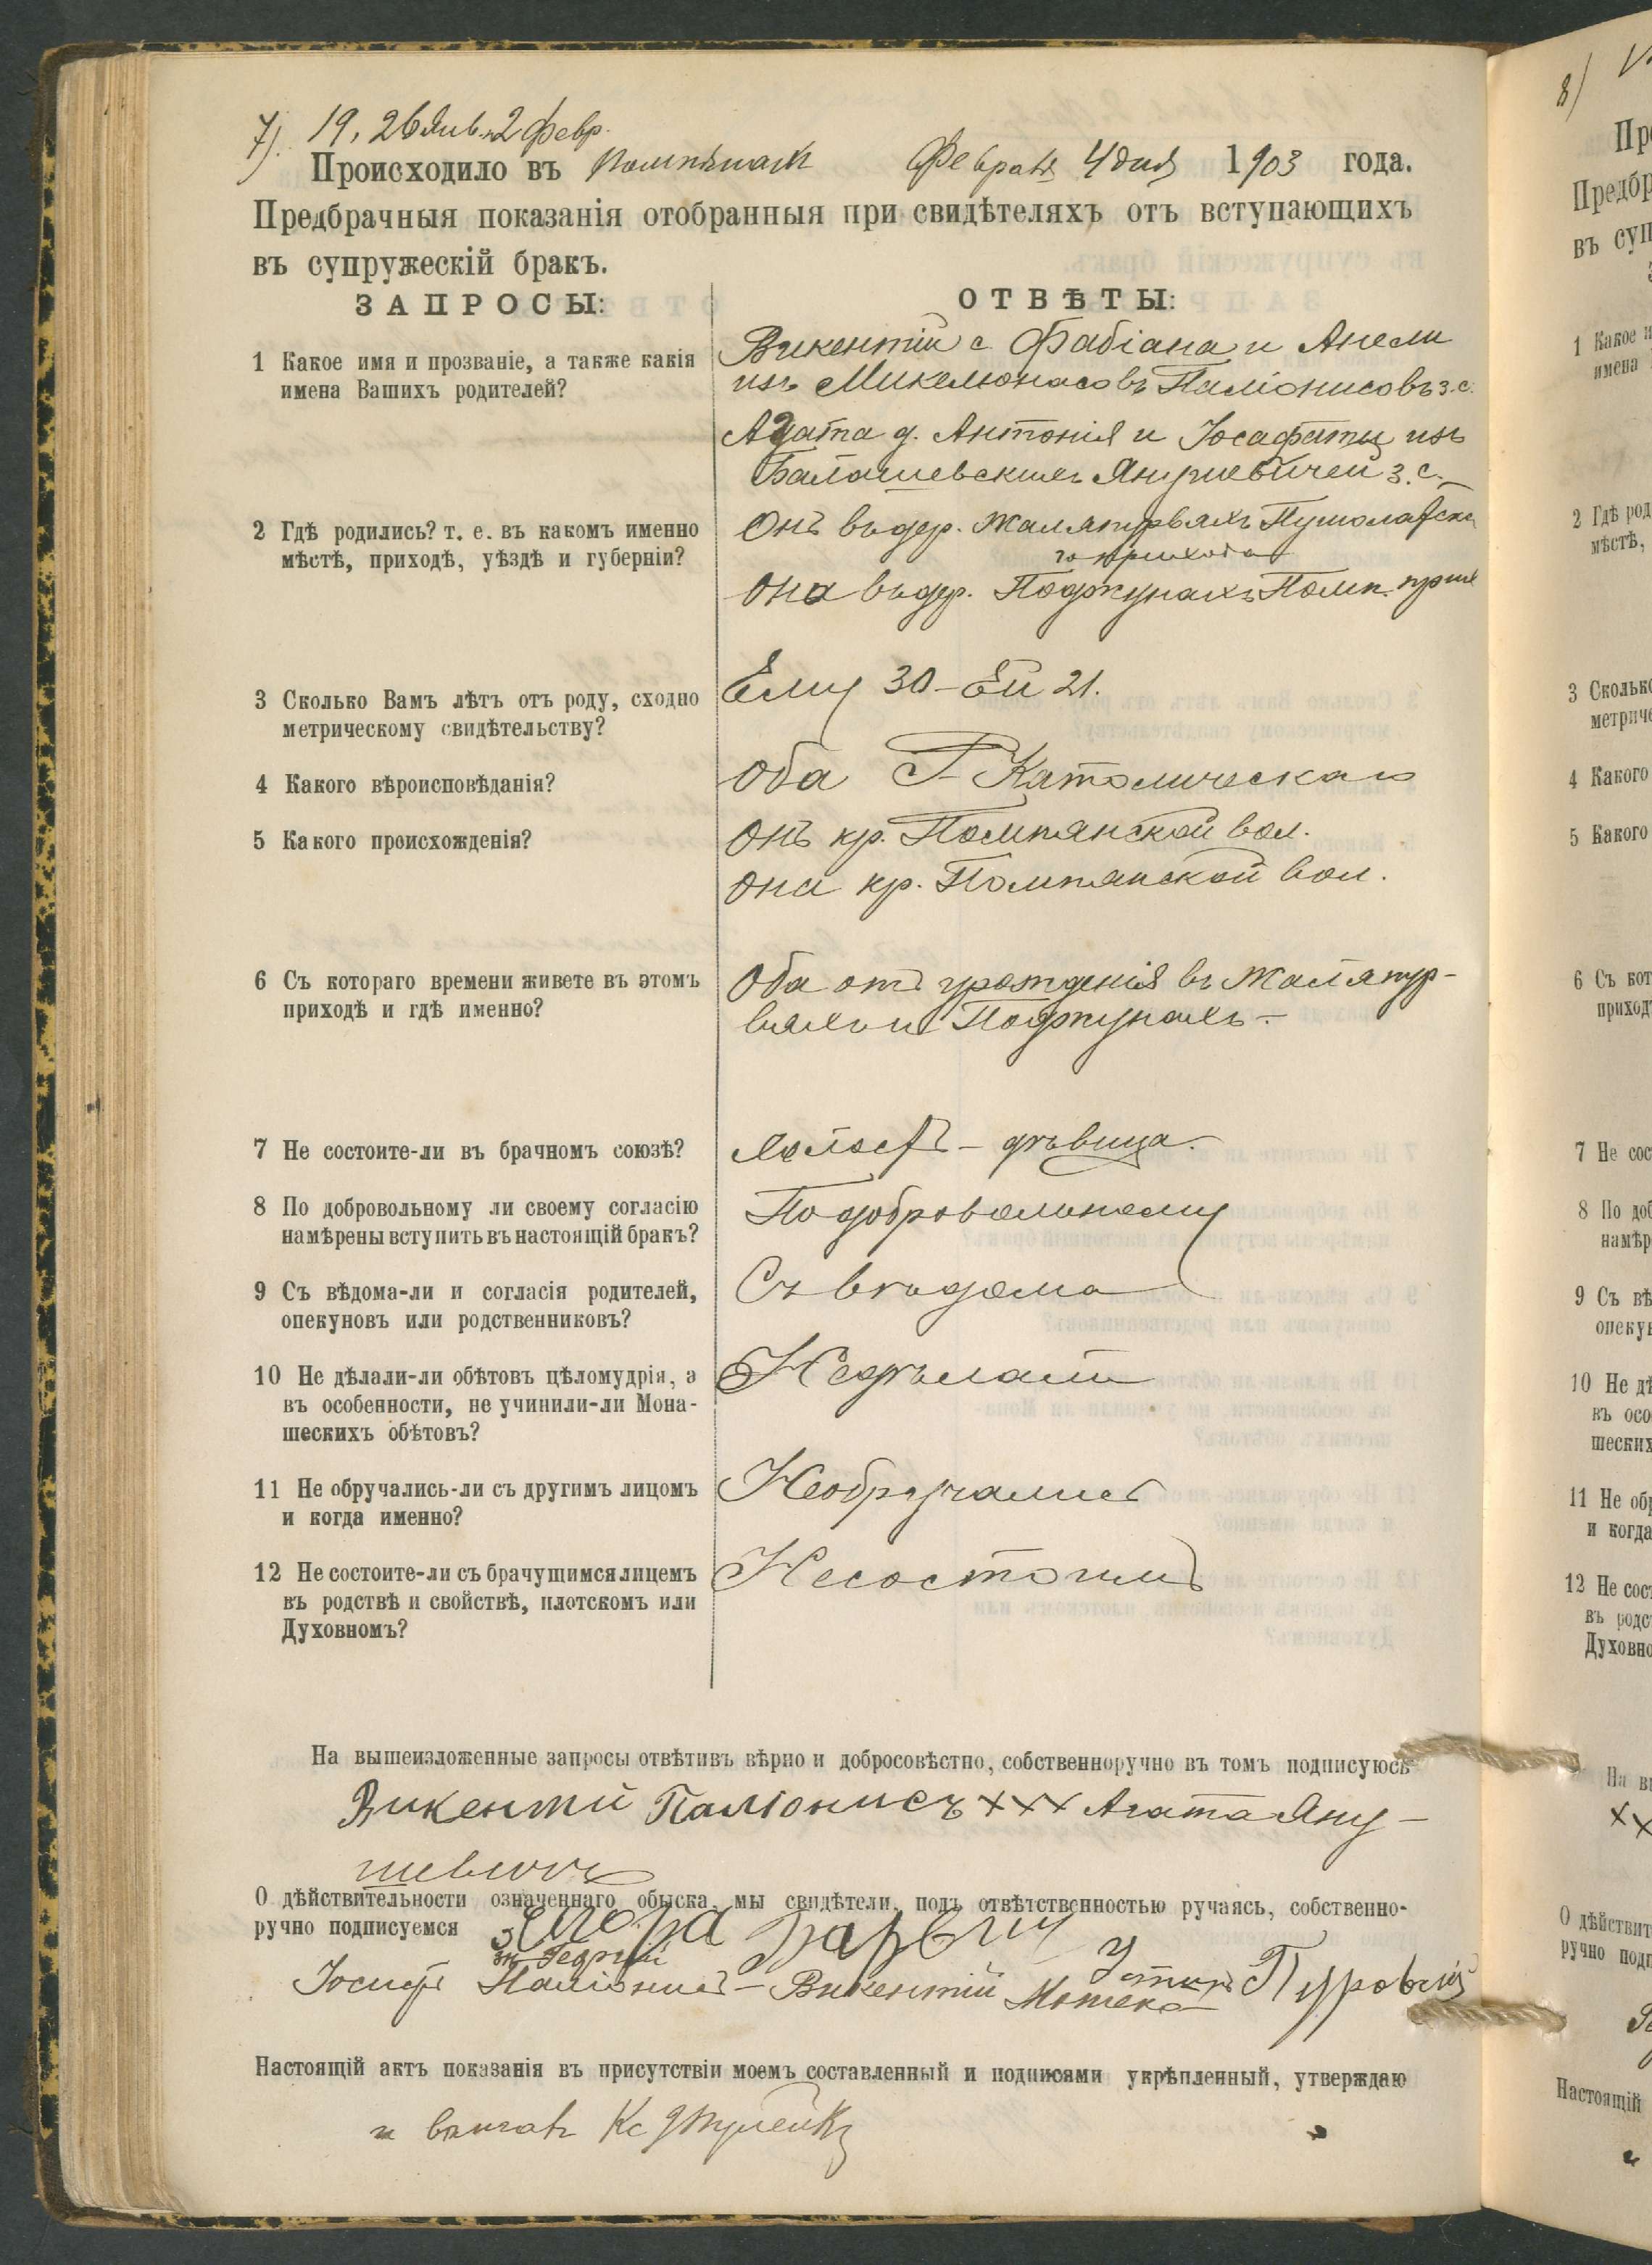 7). 19, 26 Янв. 2 февр.
Происходило въ Февраля 4 дня 1903 года.
Предбрачныя показанія отобранныя при свидѣтеляхъ отъ вступающихъ
въ супружескій бракъ.
ЗАПРОСЫ:
ОТВѢТЫ:
1 Какое имя и прозваніе, а также какія
имена Вашихъ родителей?
Викентій с. Фабіана и Анели
изъ Микелюнасовъ Паліонисовъ з. с.
Агата д. Антонія и Іосафаты изъ
Балашевскихъ Янушевичей з. с.
2 Гдѣ родились? т. е. въ какомъ именно
мѣстѣ, приходѣ, уѣздѣ и губерніи?
Онъ въ дер. Жаляпурвяхъ Пушолатска
го прихода
Она въ дер. Поджунахъ Помп. прих
3 Сколько Вамъ лѣтъ отъ роду, сходно
метрическому свидѣтельству?
Ему 30 – Ей 21.
4 Какого вѣроисповѣданія?
Оба Р. Католическаго
5 Какого происхожденія?
Онъ кр. Помпянской вол.
Она кр. Помпянской вол.
6 Съ котораго времени живете въ этомъ
приходѣ и гдѣ именно?
Оба отъ урожденія въ Жаляпур-
вяхъ и Поджунахъ –
7 Не состоите-ли въ брачномъ союзѣ?
Холостъ – дѣвица.
8 По добровольному ли своему согласію
намѣрены вступить въ настоящій бракъ?
По добровольному
9 Съ вѣдома-ли и согласія родителей,
опекуновъ или родственниковъ?
Съ вѣдома
10 Не дѣлали-ли обѣтовъ цѣломудрія, а
въ особенности, не учинили-ли Мона-
шескихъ обѣтовъ?
Недѣлали
11 Не обручались-ли съ другимъ лицомъ
и когда именно?
Необручались
12 Не состоите-ли съ брачущимся лицемъ
въ родствѣ и свойствѣ, плотскомъ или
Духовномъ?
Несостоимъ
На вышеизложенные запросы отвѣтивъ вѣрно и добросовѣстно, собственноручно въ томъ подписуюсь
Викентій Паліонисъ ××× Агата Яну-
шевичъ
О дѣйствительности означеннаго обыска, мы свидѣтели, подъ отвѣтственностью ручаясь, собственно-
ручно подписуемся
Георгій
Іосифъ Паліонисъ – Викентій
Настоящій актъ показанія въ присутствіи моемъ составленный и подписями укрѣпленный, утверждаю
Кс.
8)